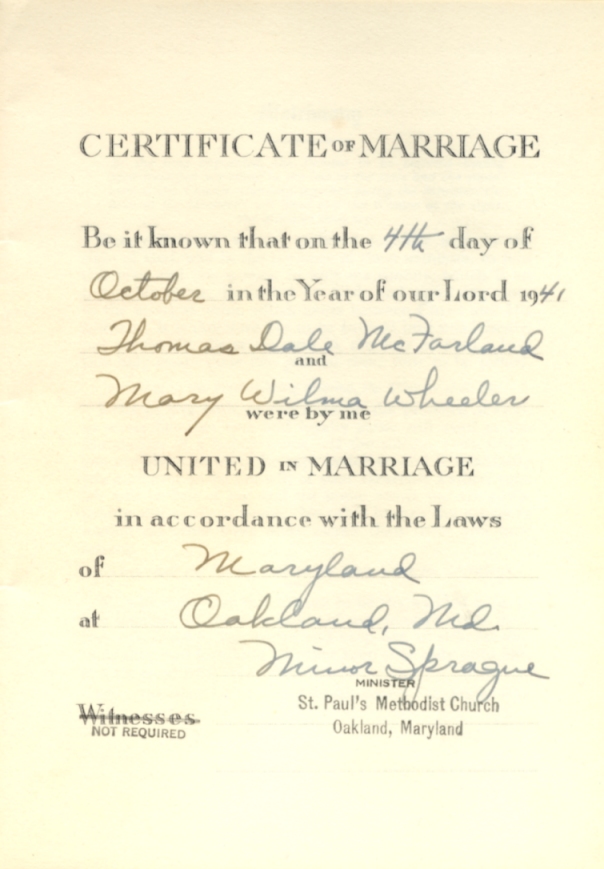 CERTIFICATE OF MARRIAGE
Be it known that on the 4th day of
October in the Year of our Lord 1941
Thomas Dale McFarland
and
Mary Wilma Wheeler
were by me
UNITED IN MARRIAGE
in accordance with the Laws
of Maryland
at Oakland, Md.
Minor Sprague
MINISTER
St. Paul's Methodist Church
Oakland, Maryland
Witnesses
NOT REQUIRED